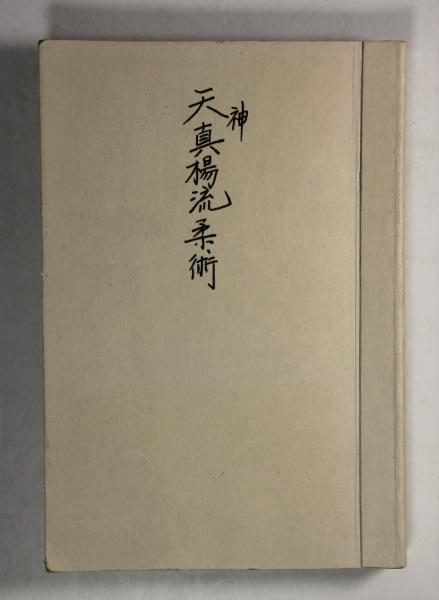 天真楊流柔術
神